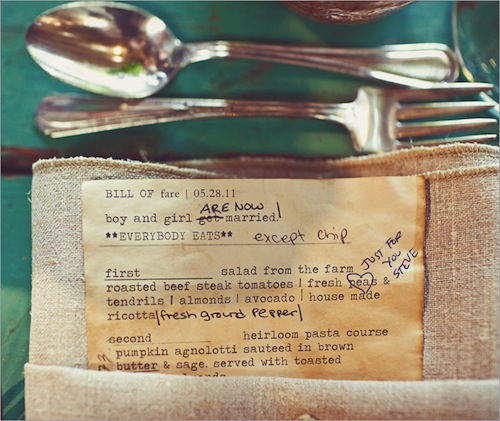 BILL OF fare | 05.28.11
ARE NOW
boy and girl get married!
**EVERYBODY EATS** except Chip
JUST FOR YOU STEVE
first salad from the farm
roasted beef steak tomatoes | fresh peas &
tendrils | almonds | avocado | house made
ricotta | fresh ground pepper |
second heirloom pasta course
pumpkin agnolotti sauteed in brown
butter & sage. served with toasted